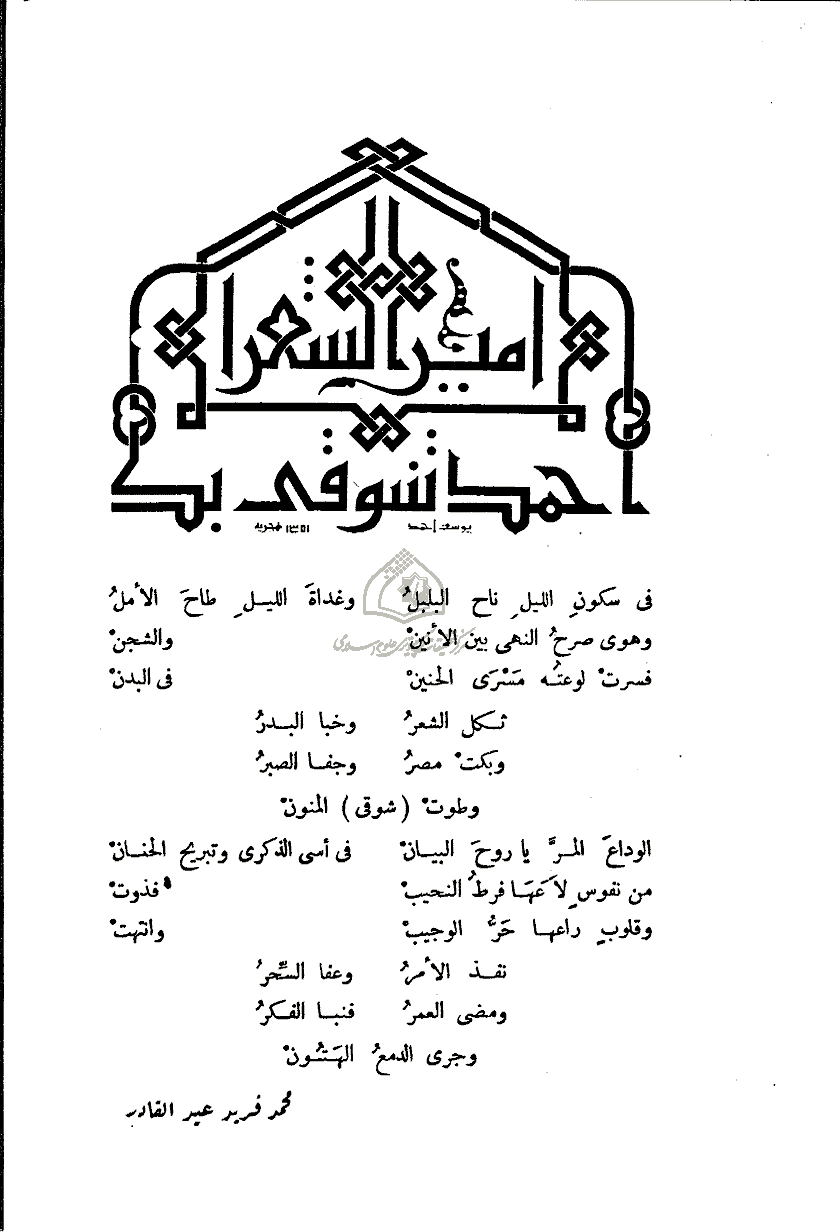 امير الشعرا
احمد شوقى بك
يوسف احمد ١٣٥١ هجريه
فى سكونِ الليلِ ناح البلبلُ وغداةَ الليلِ طاحَ الأملُ
وهوى صرحُ النهى بين الأنينْ والشجنْ
فسرتْ لوعتُه مَسْرَى الحنينْ فى البدنْ
ثكل الشعرُ وخبا البدرُ
وبكتْ مصرُ وجفا الصبرُ
وطوتْ (شوقى) المنونْ
الوداعَ المرَّ يا روحَ البيانْ فى أسى الذكرى وتبريح الحنانْ
من نفوسٍ لاَعَهَا فرطُ النحيبْ فذوتْ
وقلوبٍ راعها حَرُّ الوجيبْ وانتهتْ
نفذ الأمرُ وعفا السِّحرُ
ومضى العمرُ فنبا الفكرُ
وجرى الدمعُ الهَتُونْ
محمد فريد عبد القادر